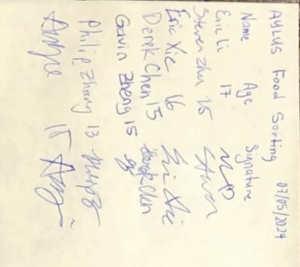 AYLUS Food Sorting 07/05/2024
Name Age Signature
Eric Li 17
Steven Zhu 15 Steven
Eric Xie 16 Eric Xie
Derek Chen 15 Derek Chen
Gavin Zheng 15
Philip Zhang 13 Philip Z
15